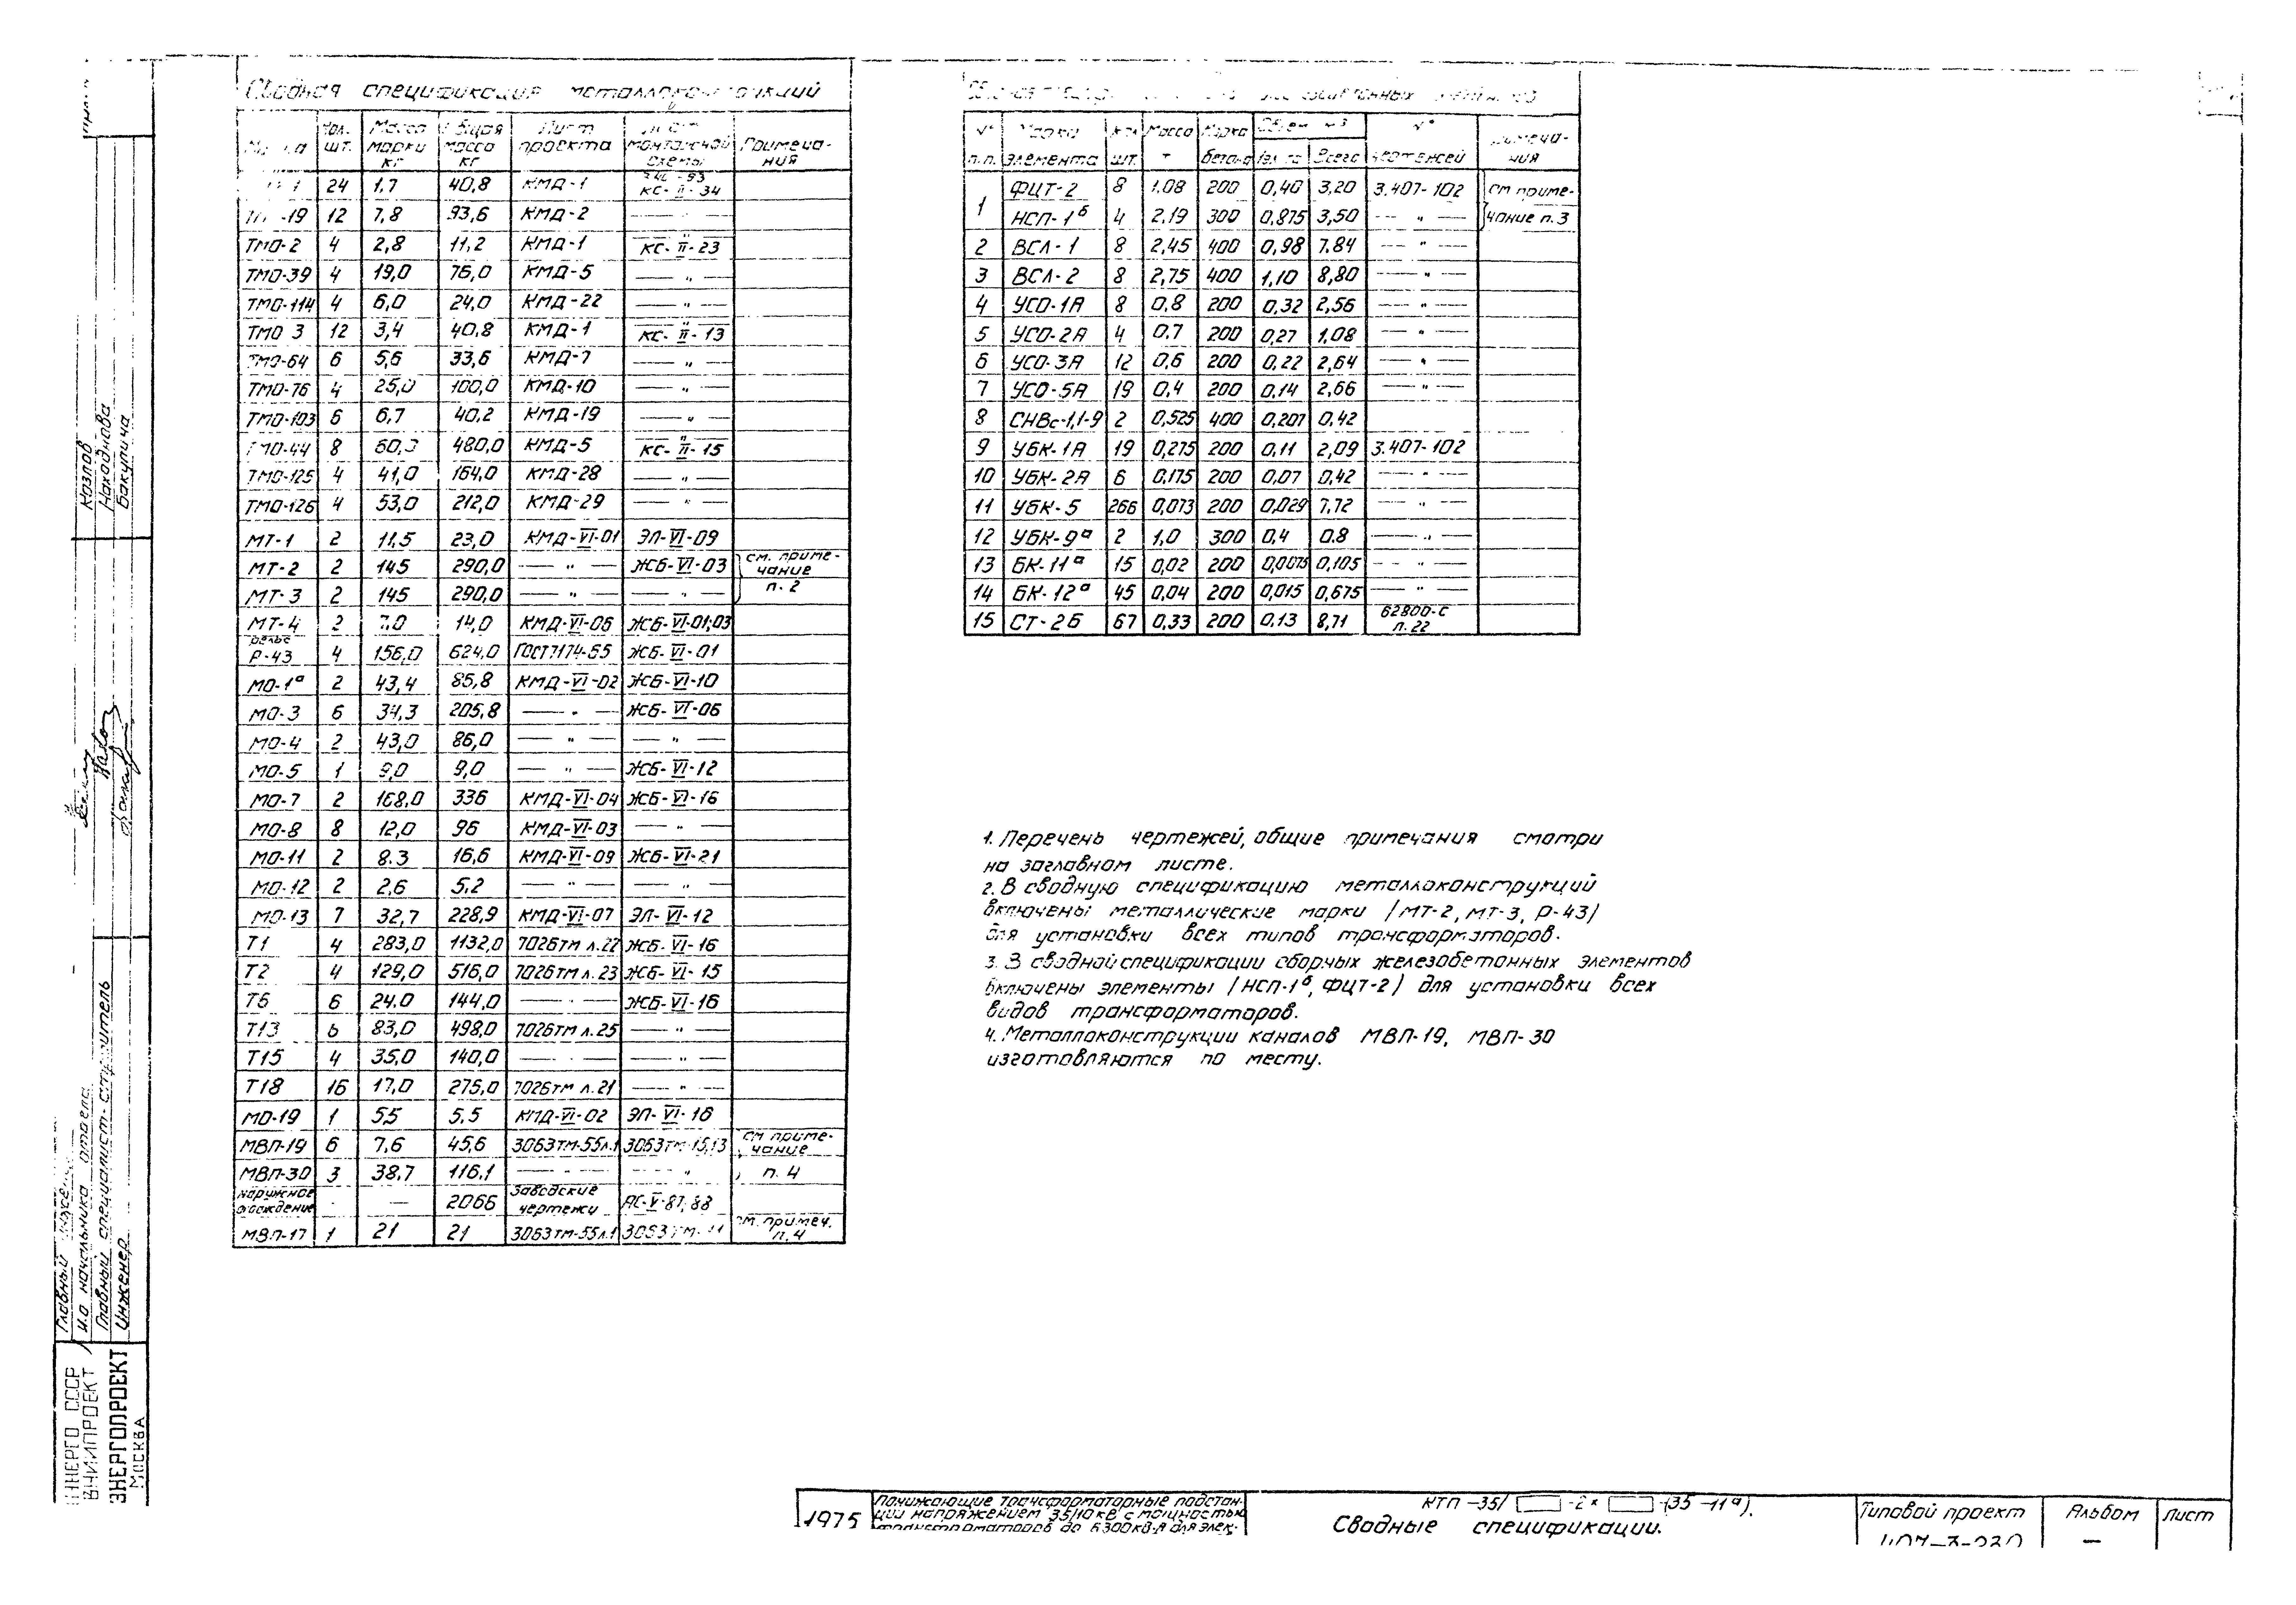 Сводная спецификация металлоконструкций
Марка Кол. шт. Масса марки кг Общая масса кг Лист проекта монтажной схемы Примеча-ния
24 1,7 40,8 КМД-1 КС-II-34
-19 12 7,8 93,6 КМД-2 — " —
ТМО-2 4 2,8 11,2 КМД-1 КС-II-23
ТМО-39 4 19,0 76,0 КМД-5 — " —
ТМО-114 4 6,0 24,0 КМД-22 — " —
ТМО 3 12 3,4 40,8 КМД-1 КС-II-13
ТМО-64 6 5,6 33,6 КМД-7 — " —
ТМО-76 4 25,0 100,0 КМД-10 — " —
ТМО-103 6 6,7 40,2 КМД-19 — " —
ТМО-44 8 60,0 480,0 КМД-5 КС-II-15
ТМО-125 4 41,0 164,0 КМД-28 — " —
ТМО-126 4 53,0 212,0 КМД-29 — " —
МТ-1 2 11,5 23,0 КМД-VI-01 ЭЛ-VI-09
МТ-2 2 145 290,0 — " — ЖБ-VI-03 см. приме-чание
МТ-3 2 145 290,0 — " — — " — п. 2
МТ-4 2 7,0 14,0 КМД-VI-06 ЖБ-VI-01;03
рельс Р-43 4 156,0 624,0 ГОСТ 7174-65 ЖБ-VI-01
МО-1ª 2 43,4 86,8 КМД-VI-02 ЖБ-VI-10
МО-3 6 34,3 205,8 — " — ЖБ-VI-06
МО-4 2 43,0 86,0 — " — — " —
МО-5 1 9,0 9,0 — " — ЖБ-VI-12
МО-7 2 168,0 336 КМД-VI-04 ЖБ-VI-16
МО-8 8 12,0 96 КМД-VI-03 — " —
МО-11 2 8.3 16,6 КМД-VI-09 ЖБ-VI-21
МО-12 2 2,6 5,2 — " — — " —
МО-13 7 32,7 228,9 КМД-VI-07 ЭЛ-VI-12
Т1 4 283,0 1132,0 7026тм л.22 ЖБ-VI-16
Т2 4 129,0 516,0 7026тм л.23 ЖБ-VI-15
Т6 6 24,0 144,0 — " — ЖБ-VI-16
Т13 6 83,0 498,0 7026тм л.25 — " —
Т15 4 35,0 140,0 — " — — " —
Т18 16 17,0 275,0 7026тм л.21 — " —
МО-19 1 5,5 5,5 КМД-VI-02 ЭЛ-VI-16
МВП-19 6 7,6 45,6 3063тм-55л.1 3063тм-15,13 см приме-чание
МВП-30 3 38,7 116,1 — " — — " — п. 4
наружное ограждение — 2066 Заводские чертежи АС-V-87,88
МВП-17 1 21 21 3063тм-55л.1 3063тм- см. примеч. п.4
№ п.п. Марка элемента Кол шт. Масса т Марка бетона Объем м3 Всего № чертежей Примеча-ния
1 ФЦТ-2 8 1.08 200 0,40 3,20 3.407-102 см приме-
НСП-1б 4 2,19 300 0,875 3,50 — " — чание п.3
2 ВСЛ-1 8 2,45 400 0,98 7.84 — " —
3 ВСЛ-2 8 2,75 400 1,10 8,80 — " —
4 УСО-1А 8 0,8 200 0,32 2,56 — " —
5 УСО-2А 4 0.7 200 0,27 1,08 — " —
6 УСО-3А 12 0,6 200 0,22 2,64 — " —
7 УСО-5А 19 0,4 200 0,14 2,66 — " —
8 СНВс-1,1-9 2 0,525 400 0,207 0,42
9 УБК-1А 19 0,275 200 0,11 2,09 3.407-102
10 УБК-2А 6 0,175 200 0,07 0,42 — " —
11 УБК-5 266 0,073 200 0,029 7,72 — " —
12 УБК-9ª 2 1,0 300 0,4 0.8 — " —
13 БК-11ª 15 0,02 200 0,0075 0,105 — " —
14 БК-12ª 45 0,04 200 0,015 0,675 — " —
15 СТ-2б 67 0,33 200 0,13 8,71 62800-С л.22
1. Перечень чертежей, общие примечания смотри
на заглавном листе.
2. В сводную спецификацию металлоконструкций
включены металлические марки /МТ-2, МТ-3, Р-43/
для установки всех типов трансформаторов.
3. В сводной спецификации сборных железобетонных элементов
включены элементы /НСП-1б, ФЦТ-2/ для установки всех
видов трансформаторов.
4. Металлоконструкции каналов МВП-19, МВП-30
изготовляются по месту.
Козлов
Накаднова
Бакулича
Главный
И.о начальника отдела
Главный специалист-строитель
Инженер
СССР
ВНИИПРОЕКТ
ЭНЕРГОПРОЕКТ
Москва
1975
Понижающие трансформаторные подстан-
ции напряжением 35/10кв с мощностью
трансформаторов до 6300кв.а для элек.
КТП-35/ -2× (35-11ª).
Сводные спецификации.
Типовой проект
407-3-230
Альбом
—
Лист